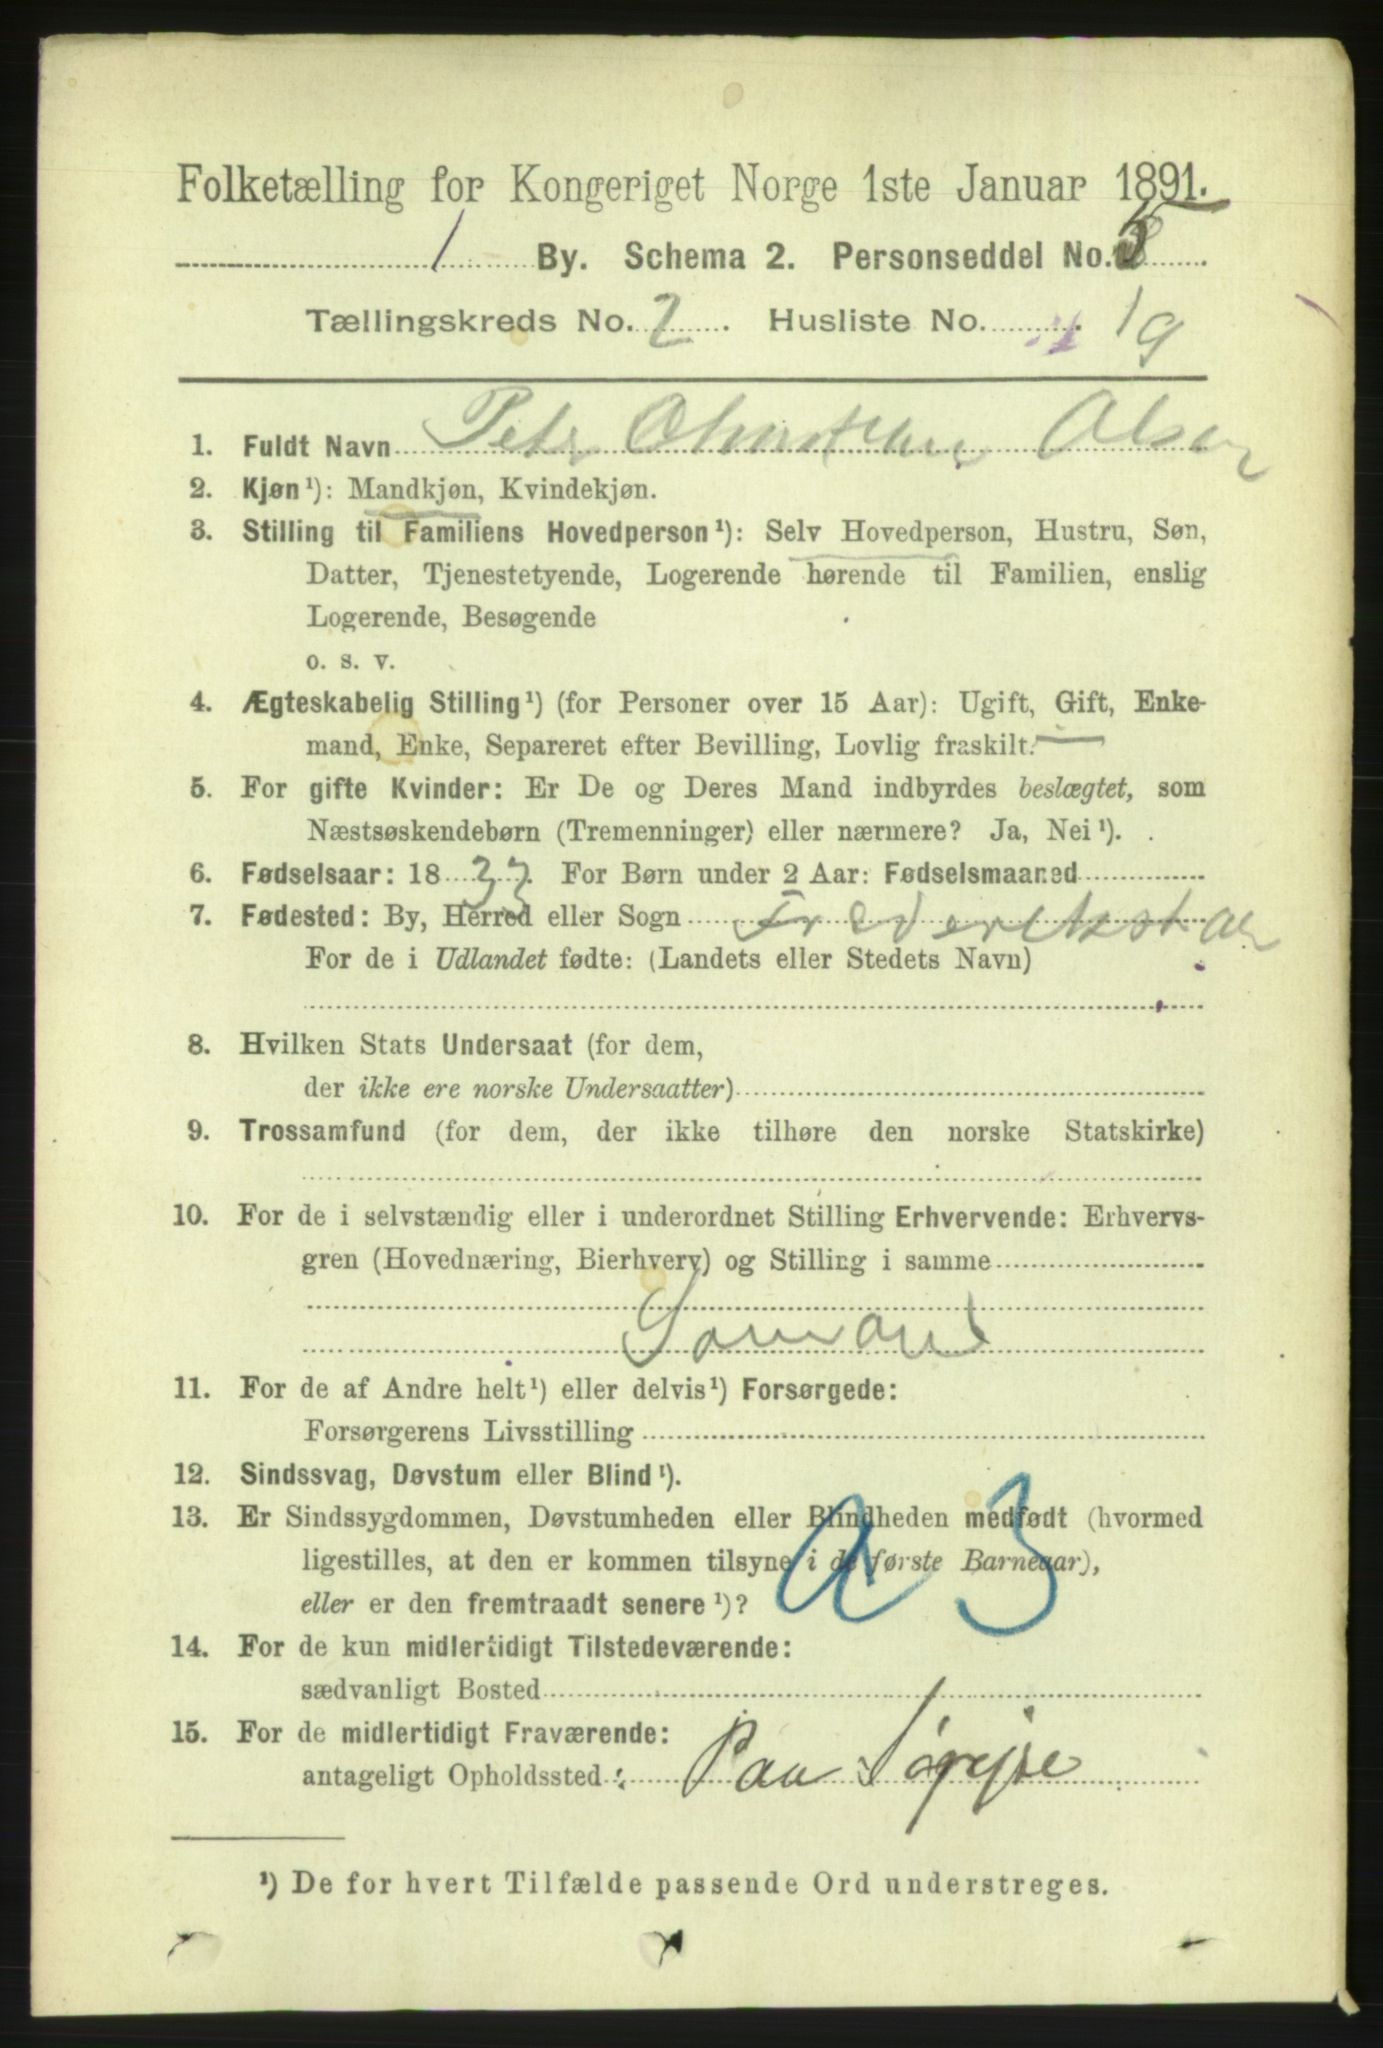 Folketælling for Kongeriget Norge 1ste Januar 1891.
1 By. Schema 2. Personseddel No. 5
Tællingskreds No. 2. Husliste No. 19
1. Fuldt Navn Peter Christian Olsen
2. Kjøn¹): Mandkjøn, Kvindekjøn.
3. Stilling til Familiens Hovedperson¹): Selv Hovedperson, Hustru, Søn,
Datter, Tjenestetyende, Logerende hørende til Familien, enslig
Logerende, Besøgende
o. s. v.
4. Ægteskabelig Stilling¹) (for Personer over 15 Aar): Ugift, Gift, Enke-
mand, Enke, Separeret efter Bevilling, Lovlig fraskilt.
5. For gifte Kvinder: Er De og Deres Mand indbyrdes beslægtet, som
Næstsøskendebørn (Tremenninger) eller nærmere? Ja, Nei¹).
6. Fødselsaar: 1833. For Børn under 2 Aar: Fødselsmaaned
7. Fødested: By, Herred eller Sogn Frederikstad
For de i Udlandet fødte: (Landets eller Stedets Navn)
8. Hvilken Stats Undersaat (for dem,
der ikke ere norske Undersaatter)
9. Trossamfund (for dem, der ikke tilhøre den norske Statskirke)
10. For de i selvstændig eller i underordnet Stilling Erhvervende: Erhvervs-
gren (Hovednæring, Bierhverv) og Stilling i samme
Sømand
11. For de af Andre helt¹) eller delvis¹) Forsørgede:
Forsørgerens Livsstilling
12. Sindssvag, Døvstum eller Blind¹).
13. Er Sindssygdommen, Døvstumheden eller Blindheden medfødt (hvormed
ligestilles, at den er kommen tilsyne i de første Barneaar),
eller er den fremtraadt senere¹)?
a 3
14. For de kun midlertidigt Tilstedeværende:
sædvanligt Bosted
15. For de midlertidigt Fraværende:
antageligt Opholdssted: Paa Søreise
¹) De for hvert Tilfælde passende Ord understreges.